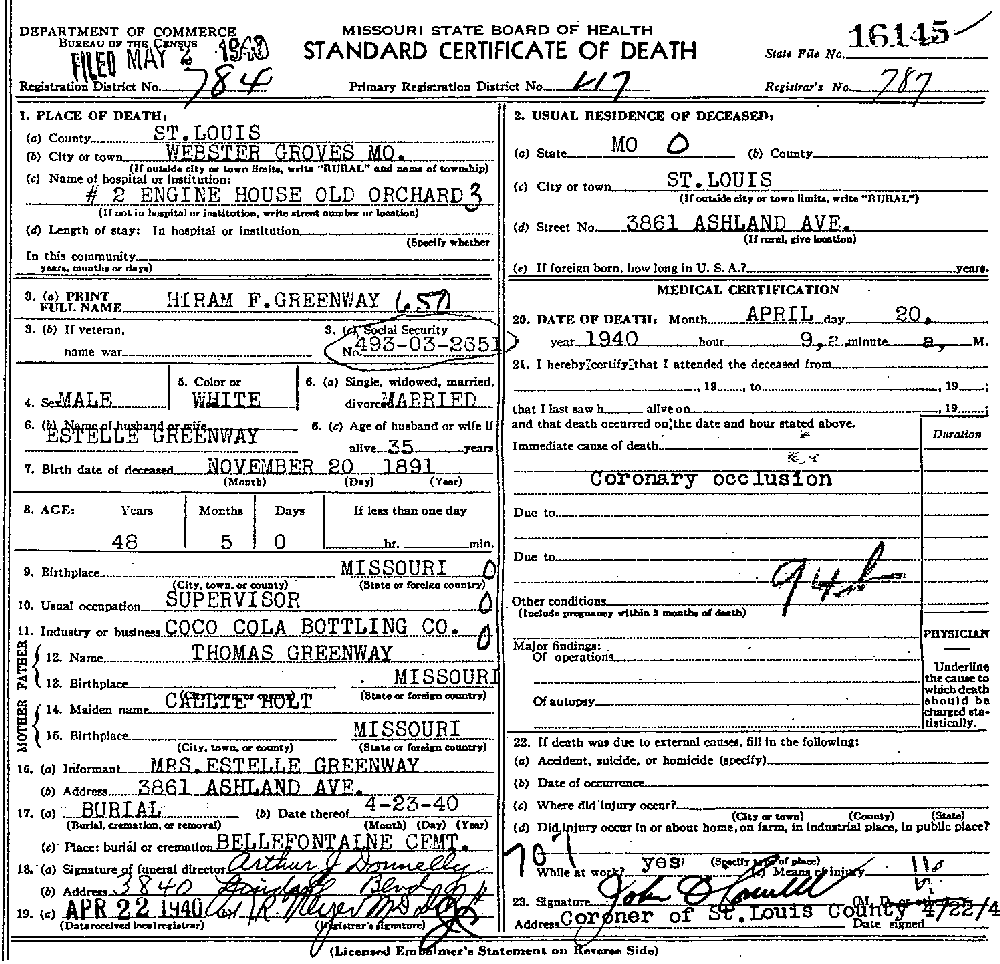 DEPARTMENT OF COMMERCE
BUREAU OF THE CENSUS
FILED MAY 2 1940
Registration District No. 784
MISSOURI STATE BOARD OF HEALTH
STANDARD CERTIFICATE OF DEATH
Primary Registration District No. 417
State File No. 16145
Registrar's No. 787
1. PLACE OF DEATH:
(a) County ST.LOUIS
(b) City or town WEBSTER GROVES MO.
(If outside city or town limits, write "RURAL" and name of township)
(c) Name of hospital or institution:
# 2 ENGINE HOUSE OLD ORCHARD 3
(If not in hospital or institution, write street number or location)
(d) Length of stay: In hospital or institution
(Specify whether
In this community
years, months or days)
3. (a) PRINT FULL NAME HIRAM F.GREENWAY 657
3. (b) If veteran,
name war
3. (c) Social Security
No. 493-03-2651
4. Sex MALE
5. Color or
WHITE
6. (a) Single, widowed, married,
divorced MARRIED
6. (b) Name of husband or wife
ESTELLE GREENWAY
6. (c) Age of husband or wife if
alive 35 years
7. Birth date of deceased NOVEMBER 20 1891
(Month) (Day) (Year)
8. AGE: Years Months Days If less than one day
48 5 0 hr. min.
9. Birthplace MISSOURI 0
(City, town, or county) (State or foreign country)
10. Usual occupation SUPERVISOR 0
11. Industry or business COCO COLA BOTTLING CO. 0
FATHER
12. Name THOMAS GREENWAY
13. Birthplace MISSOURI
(City, town, or county) (State or foreign country)
MOTHER
14. Maiden name CALLIE HOLT
15. Birthplace MISSOURI
(City, town, or county) (State or foreign country)
16. (a) Informant MRS.ESTELLE GREENWAY
(b) Address 3861 ASHLAND AVE.
17. (a) BURIAL (b) Date thereof 4-23-40
(Burial, cremation, or removal) (Month) (Day) (Year)
(c) Place: burial or cremation BELLEFONTAINE CEMT.
18. (a) Signature of funeral director Arthur J Donnelly
(b) Address 3840 Lindell Blvd
19. (a) APR 22 1940 R Meyer MD
(Date received local registrar) (Registrar's signature)
2. USUAL RESIDENCE OF DECEASED:
(a) State MO 0 (b) County
(c) City or town ST.LOUIS
(If outside city or town limits, write "RURAL")
(d) Street No. 3861 ASHLAND AVE.
(If rural, give location)
(e) If foreign born, how long in U. S. A.? years.
MEDICAL CERTIFICATION
20. DATE OF DEATH: Month APRIL day 20,
year 1940 hour 9, 2 minute a, M.
21. I hereby certify that I attended the deceased from
, 19 , to , 19 ;
that I last saw h alive on , 19 ;
and that death occurred on the date and hour stated above.
Duration
Immediate cause of death
Coronary occlusion
Due to
Due to
94b
Other conditions
(Include pregnancy within 3 months of death)
PHYSICIAN
Major findings:
Of operations
Of autopsy
Underline the cause to which death should be charged statistically.
22. If death was due to external causes, fill in the following:
(a) Accident, suicide, or homicide (specify)
(b) Date of occurrence
(c) Where did injury occur?
(City or town) (County) (State)
(d) Did injury occur in or about home, on farm, in industrial place, in public place?
707
While at work? yes (Specify type of place)
(e) Means of injury
23. Signature John O'Connell
Address Coroner of St.Louis County Date signed 4/22/4
(Licensed Embalmer's Statement on Reverse Side)